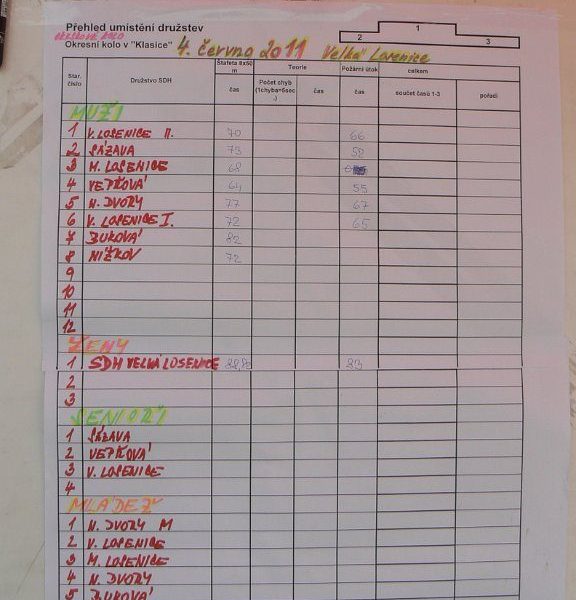 Přehled umístění družstev
OKRSKOVÉ KOLO
Okresní kolo v "Klasice" 4. ČERVNO 2011 VELKÁ LOSENICE
1
2
3
Star. číslo Družstvo SDH Štafeta 8x50 m Teorie Požární útok celkem
čas Počet chyb (1chyba=5sec.) čas čas součet časů 1-3 pořadí
MUŽI
1 V. LOSENICE II. 70 66
2 SÁZAVA 75 52
3 M. LOSENICE 68
4 VEPŘOVÁ 64 55
5 N. DVORY 77 67
6 V. LOSENICE I. 72 65
7 BUKOVÁ 82
8 NÍŽKOV 72
9
10
11
12
ŽENY
1 SDH VELKÁ LOSENICE 83
2
3
SENIOŘI
1 SÁZAVA
2 VEPŘOVÁ
3 V. LOSENICE
4
MLÁDEŽ
1 N. DVORY M
2 V. LOSENICE
3 M. LOSENICE
4 N. DVORY
5 BUKOVÁ